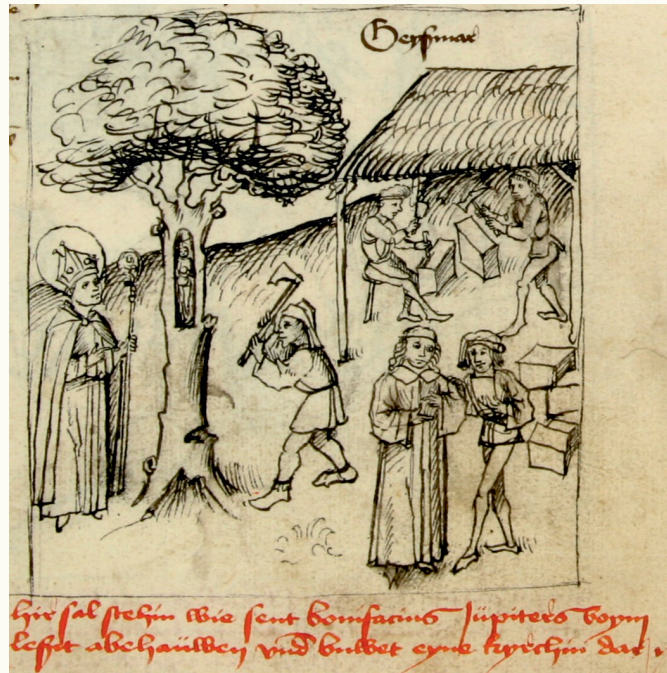 Geysmar
hir sal stehin wie sent bonifacius Jupiters boym
lesset abehauwen vnd buwet eyne kyrchin dar